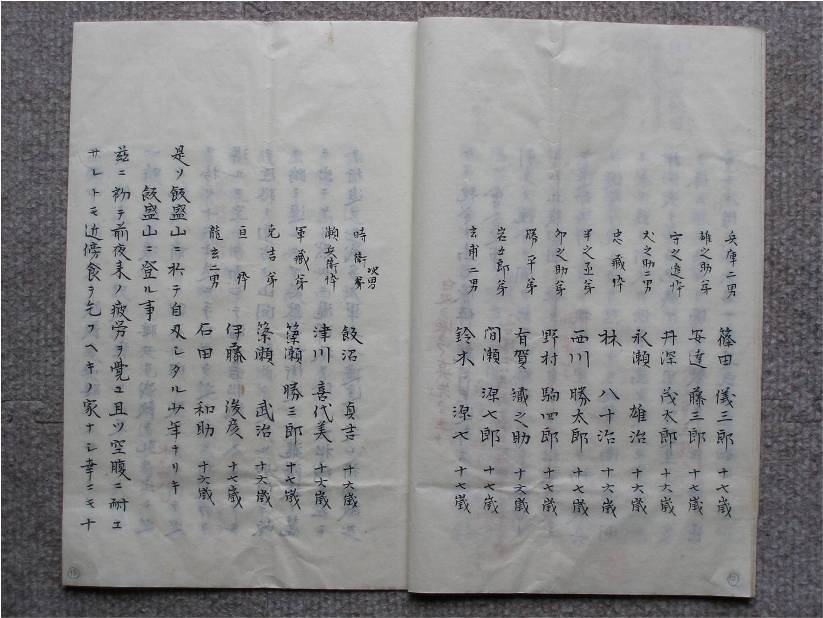 兵庫二男 篠田 儀三郎 十七歳
雄之助弟 安達 藤三郎 十七歳
守之進忰 井深 茂太郎 十六歳
丈之助二男 永瀬 雄治 十六歳
忠蔵忰 林 八十治 十六歳
半之丞弟 西川 勝太郎 十六歳
卯之助弟 野村 駒四郎 十七歳
勝平弟 有賀 織之助 十六歳
岩五郎弟 間瀬 源七郎 十七歳
玄甫二男 鈴木 源七 十七歳
時衛 次男 弟 飯沼 貞吉 十六歳
瀬兵衛忰 津川 喜代美 十六歳
軍蔵弟 簗瀬 勝三郎 十七歳
克吉弟 簗瀬 武治 十六歳
亘忰 伊藤 俊彦 十七歳
龍玄二男 石田 和助 十六歳
是ソ飯盛山ニ於テ自刃シタル少年ナリキ
飯盛山ニ登ル事
茲ニ初テ前夜来ノ疲労ヲ覚ユ且ツ空腹ニ耐ユ
サレトモ近傍食ヲ乞フヘキノ家ナシ幸ニモ十